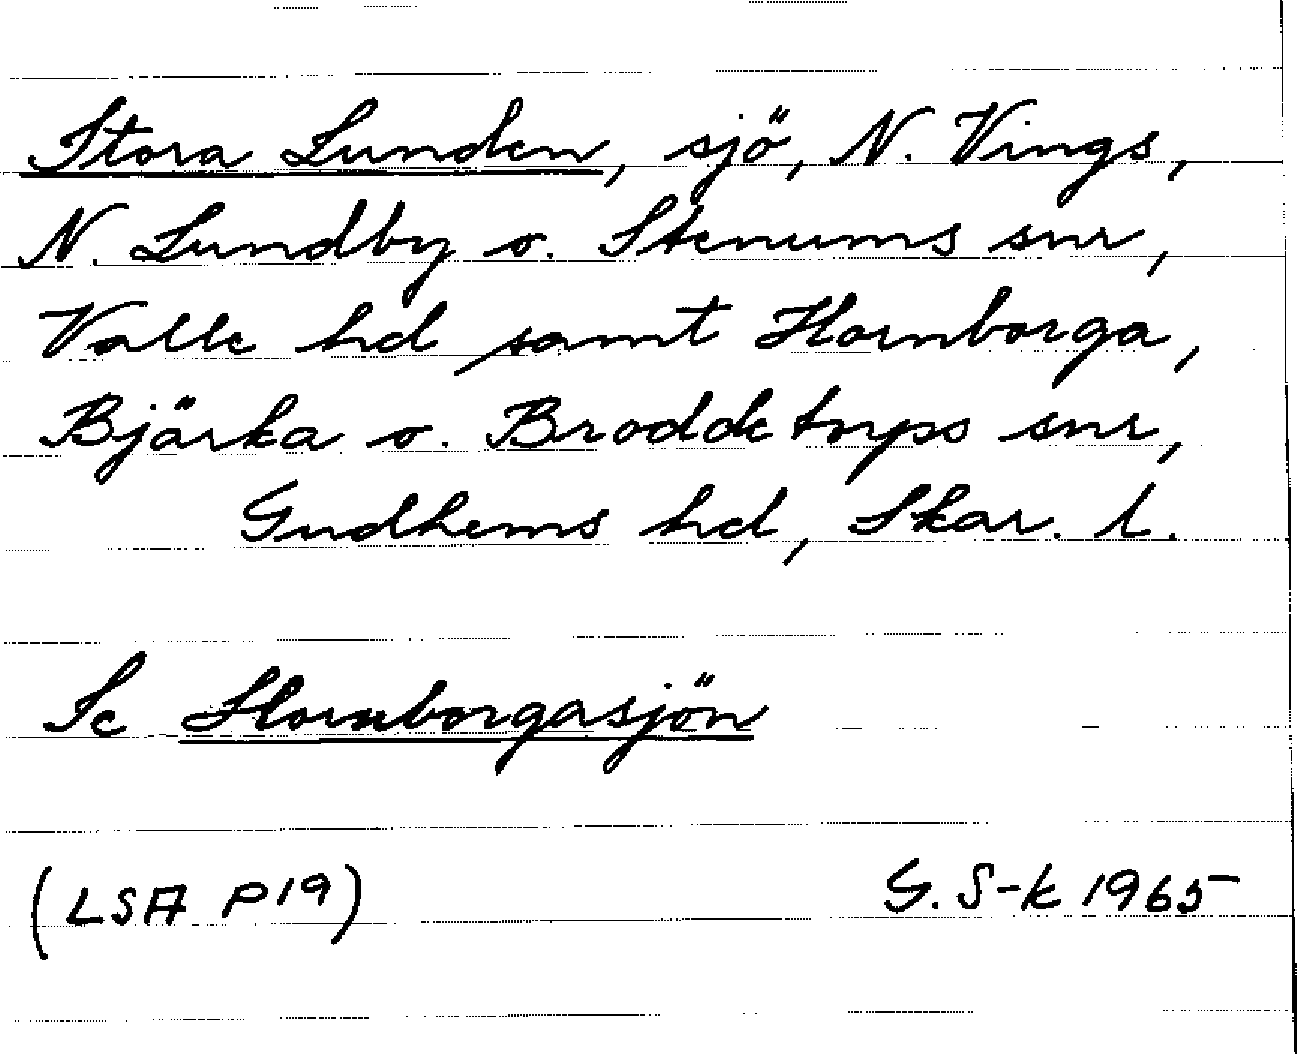 Stora Lunden, sjö, N. Vings,
N. Lundby o. Stenums snr,
Valle hd samt Hornborga,
Bjärka o. Broddetorps snr,
Gudhems hd, Skar. l.
Se Hornborgasjön
(LSA P19) G. S-k 1965